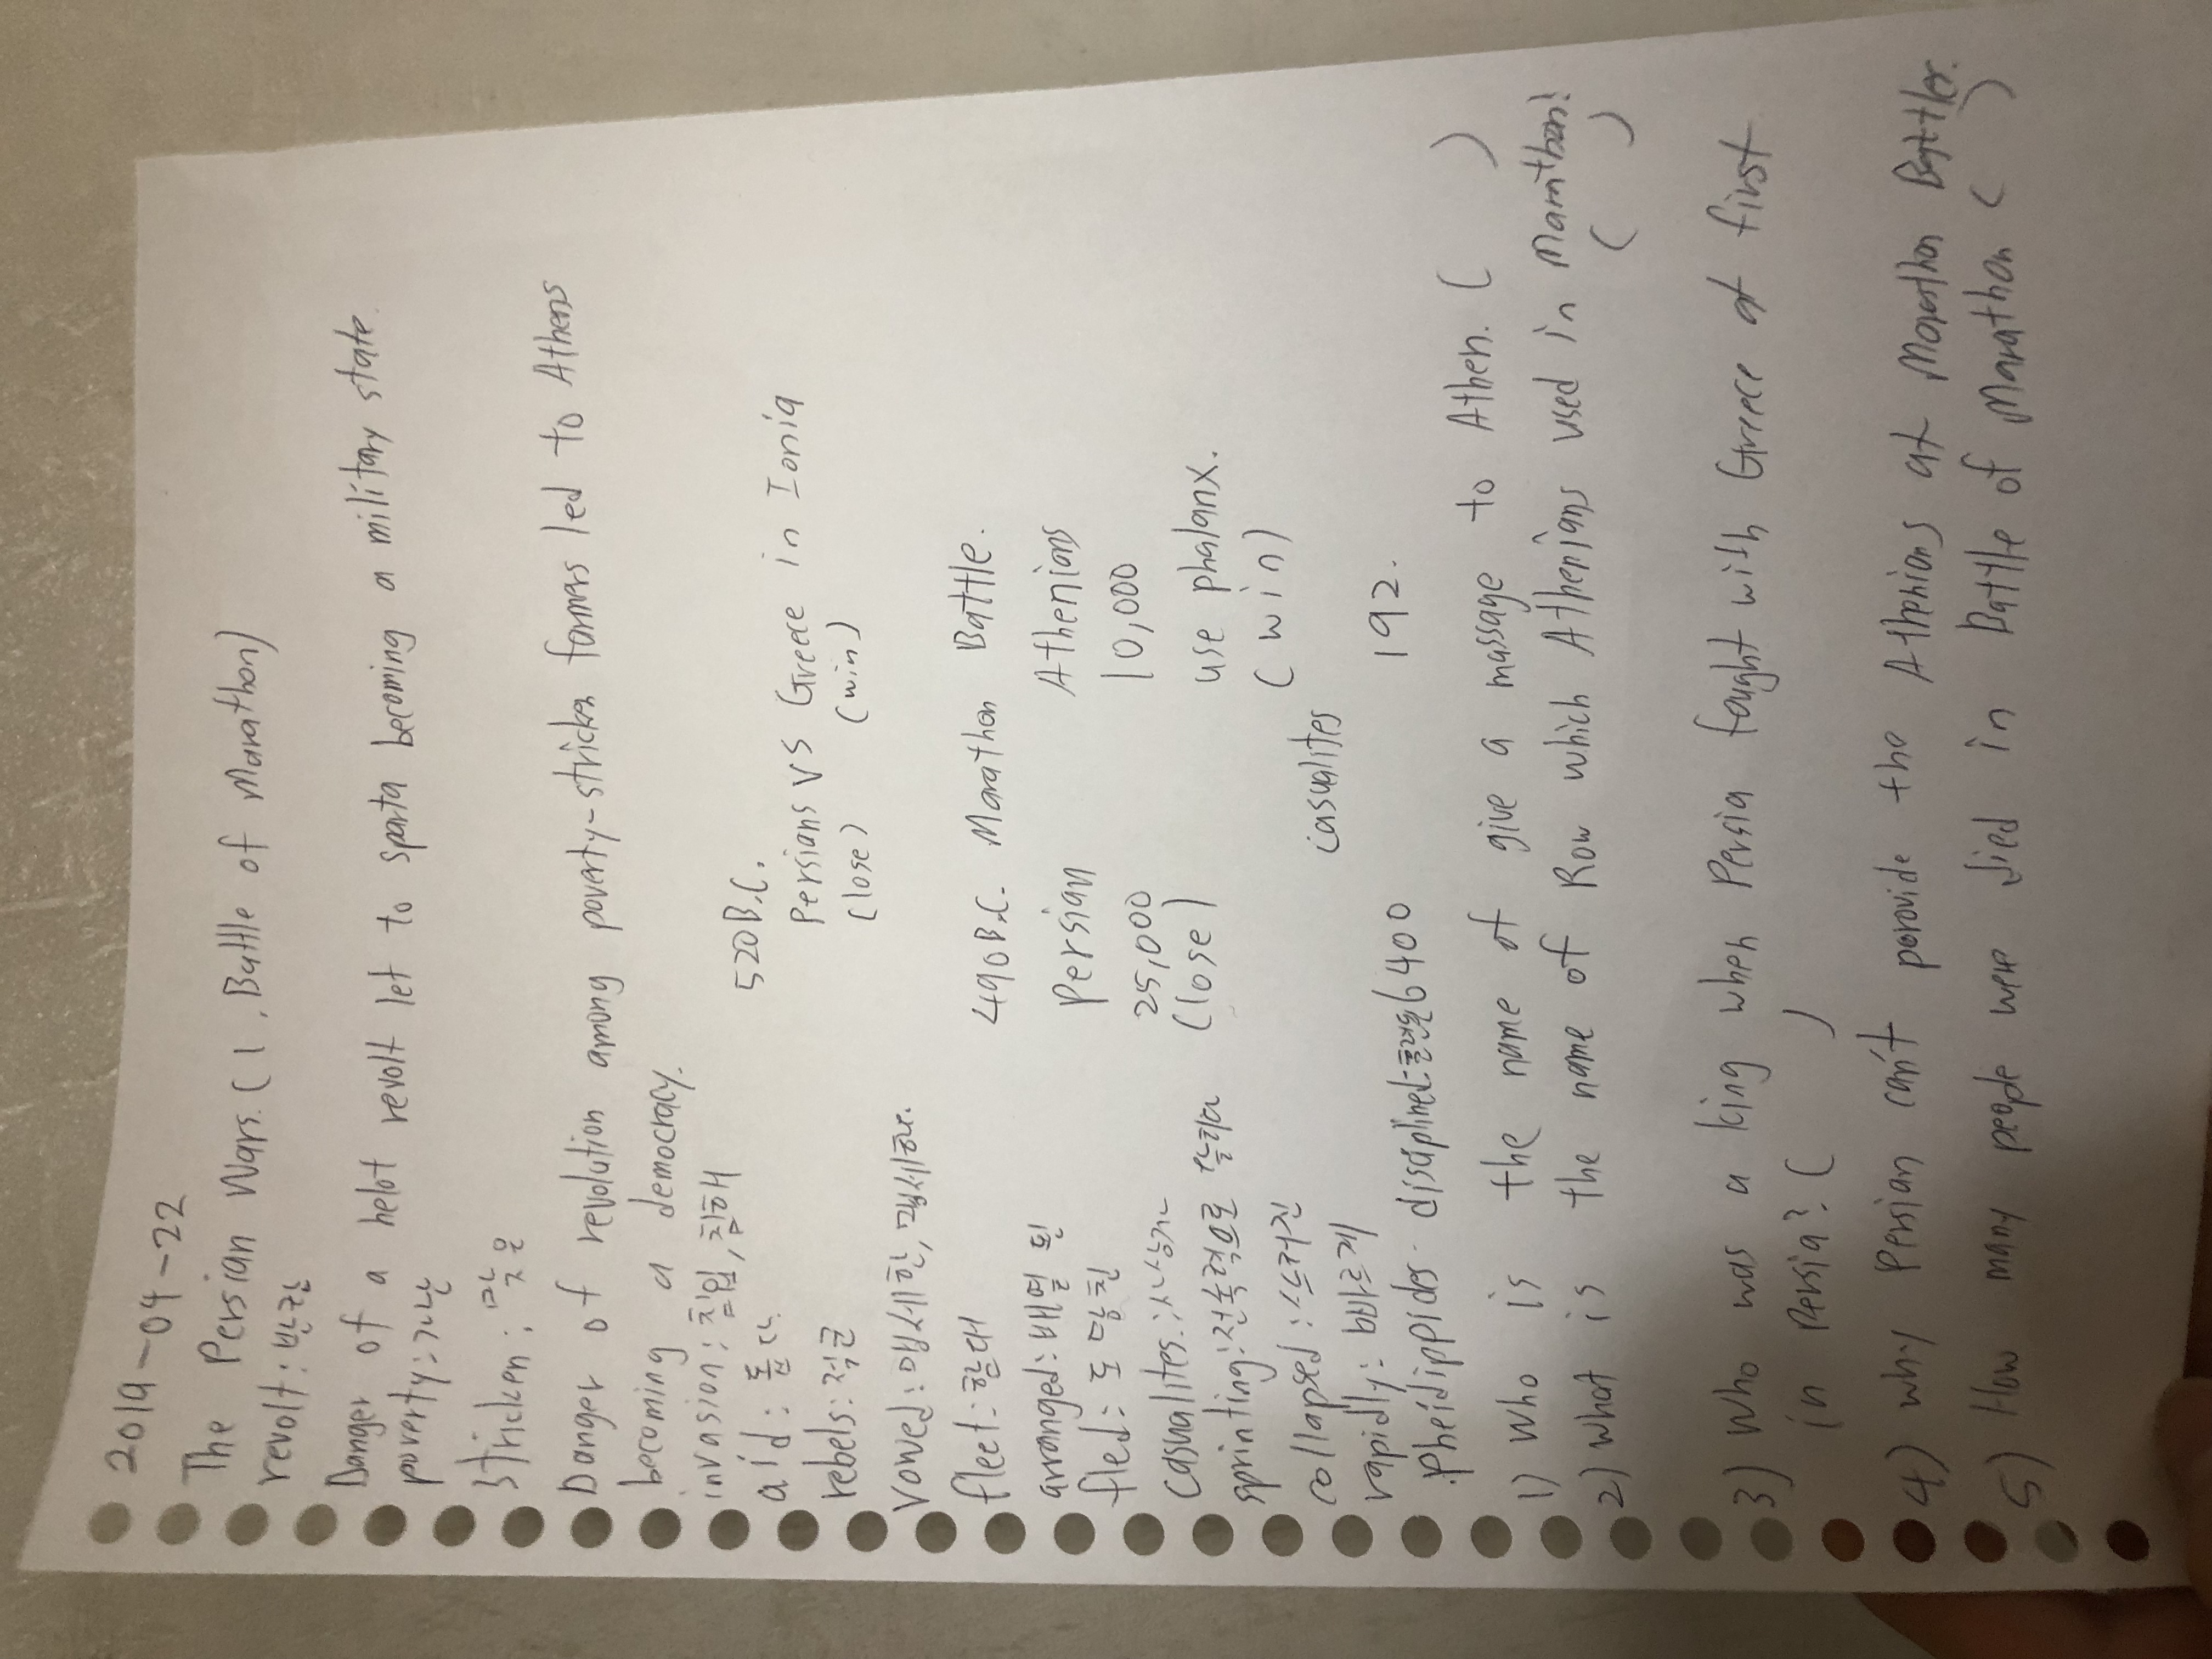 2019-04-22
The Persian Wars. (1, Battle of Marathon)
revolt: 반란
Danger of a helot revolt let to sparta becoming a military state.
poverty: 가난
stricken: 맞은
Danger of revolution among poverty-stricken farmers led to Athens
becoming a democracy.
invasion: 침입, 침해
aid: 돕다. 520B.C.
rebels: 적군 Persians VS Greece in Ionia
(lose) (win)
vowed: 맹세한, 맹세하.
fleet: 함대 490B.C. Marathon Battle.
arranged: 배열 된 Persian Athenians
fled: 도망친 25,000 10,000
casualites: 사상자 (lose) use phalanx.
sprinting: 전속력으로 달리다 (win)
collapsed: 쓰러진 casualites
rapidly: 빠르게
Pheidippides. disciplined: 6400 192.
1) Who is the name of give a massage to Athen. ( )
2) What is the name of Row which Athenians used in Marathon!
( )
3) Who was a king when Persia fought with Greece at first
in Persia? ( )
4) why Persian can't porovide the Athenians at Marathon Battler.
5) How many people were died in Battle of Marathon ( )